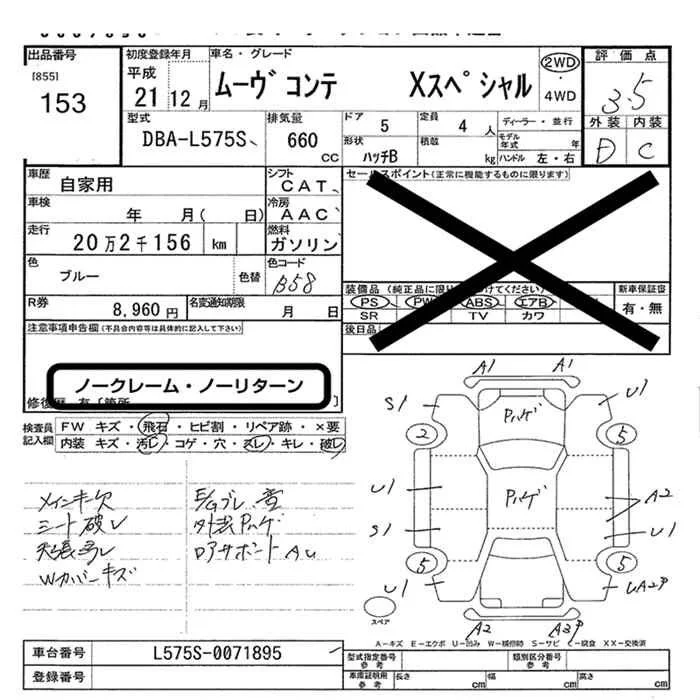 出品番号
[855]
153
初度登録年月
平成
21 12 月
車名・グレード
ムーヴ コンテ Xスペシャル
2WD
・
4WD
評価点
3.5
外装 内装
D C
型式
DBA-L575S
排気量
660
CC
ドア 5
定員 4 人
ディーラー・並行
形状
ハッチB
積載 kg
モデル年式 年
ハンドル 左・右
車歴
自家用
シフト
CAT
車検
年 月( 日)
冷房
AAC
走行
20万2千156 km
燃料
ガソリン
色
ブルー
色替
色コード
B58
R券
8,960円
名変通知期限
月 日
セールスポイント(正常に機能するものに限ります)
新車保証書
有・無
PS PW ABS エアB
SR TV カワ
後日品
注意事項申告欄(不具合内容等は具体的に記入して下さい)
ノークレーム・ノーリターン
検査員
記入欄
FW キズ・飛石・ヒビ割・リペア跡・×要
内装 キズ・汚レ・コゲ・穴・スレ・キレ・破レ
メインキー欠
シート破レ
天張汚レ
Wカバーキズ
E/Gブレ 音
外装Pハゲ
ロアサポートAU
A1 A1
S1 U1
Pハゲ
2 5
U1 Pハゲ A2
S1 U1
5 5
U1 UA2P
A2 A3P
スペア
A-キズ E-エクボ U-凹み W-補修跡 S-サビ C-腐食 XX-交換済
車台番号
L575S-0071895
登録番号
型式指定番号
参考
類別区分番号
参考
車庫証明用
参考
長さ cm
幅 cm
高さ cm